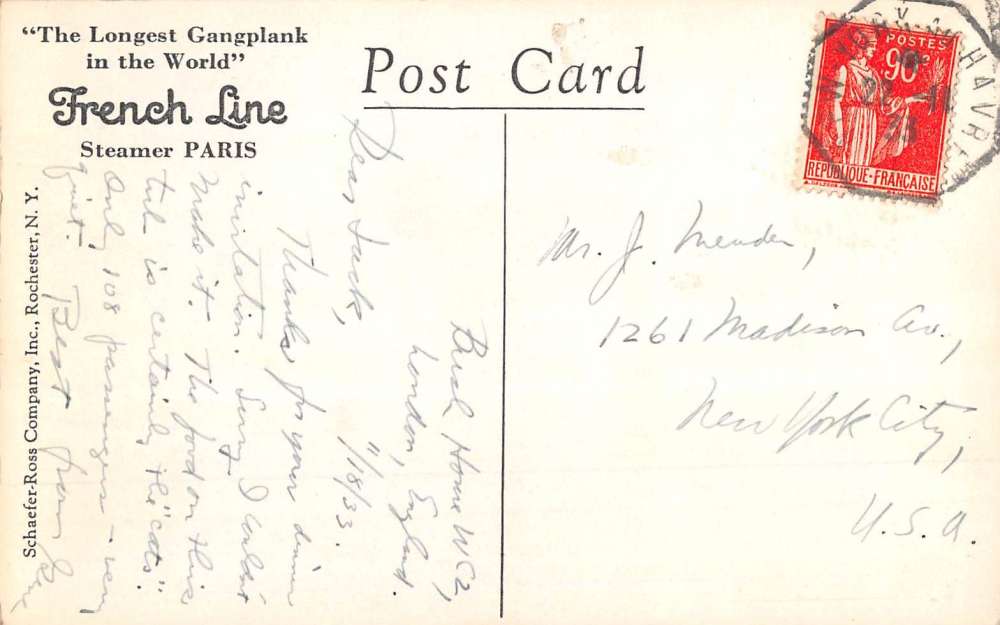 "The Longest Gangplank
in the World"
French Line
Steamer PARIS
Post Card
POSTES
90c
RÉPUBLIQUE·FRANÇAISE
HAVRE
22 - 11
33
Bush House WC2,
London, England.
11/18/33.
Dear Jack,
Thanks for your dinner
invitation. Sorry I couldn't
make it. The food on this
tub is certainly the "cats".
Only 108 passengers – very
quiet. Best from
Mr. J. Mender,
1261 Madison Av.,
New York City,
U.S.A.
Schaefer-Ross Company, Inc., Rochester, N. Y.